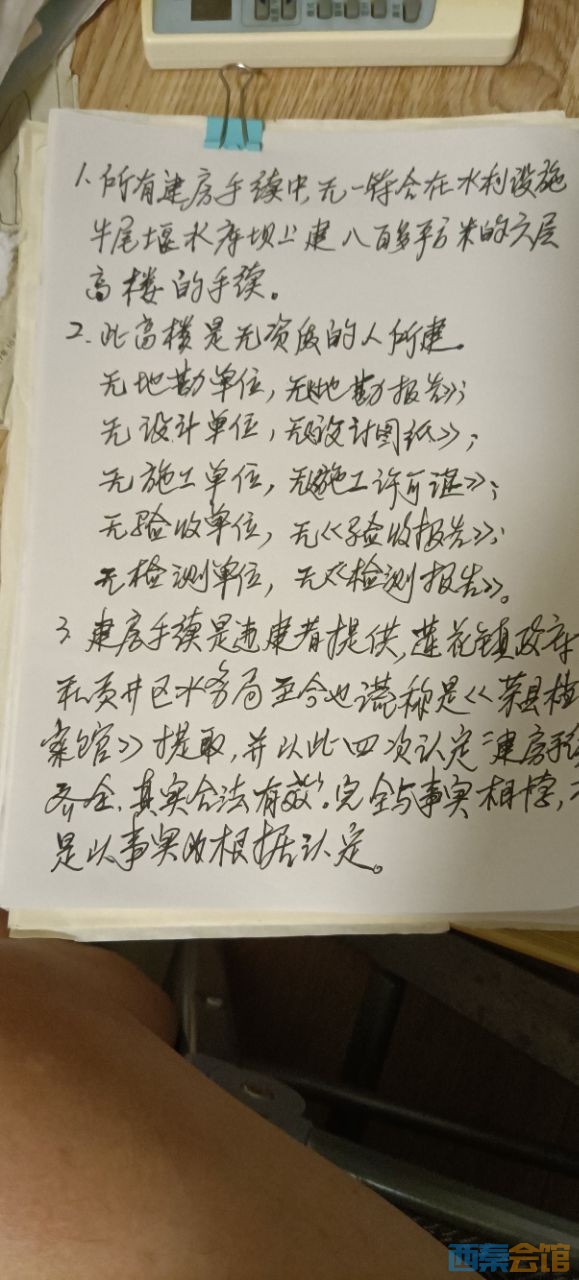 1.所有建房手续中,无一符合在水利设施
牛尾堰水库坝上建八百多平方米的六层
高楼的手续。
2.此高楼是无资质的人所建。
无地勘单位,无《地勘报告》;
无设计单位,无《设计图纸》;
无施工单位,无《施工许可证》;
无验收单位,无《验收报告》;
无检测单位,无《检测报告》。
3 建房手续是违建者提供,莲花镇政府
和贡井区水务局至今也谎称是《荣县档
案馆》提取,并以此四次认定“建房手续
齐全、真实合法有效”。完全与事实相悖,
是以事实为根据认定。
西秦会馆